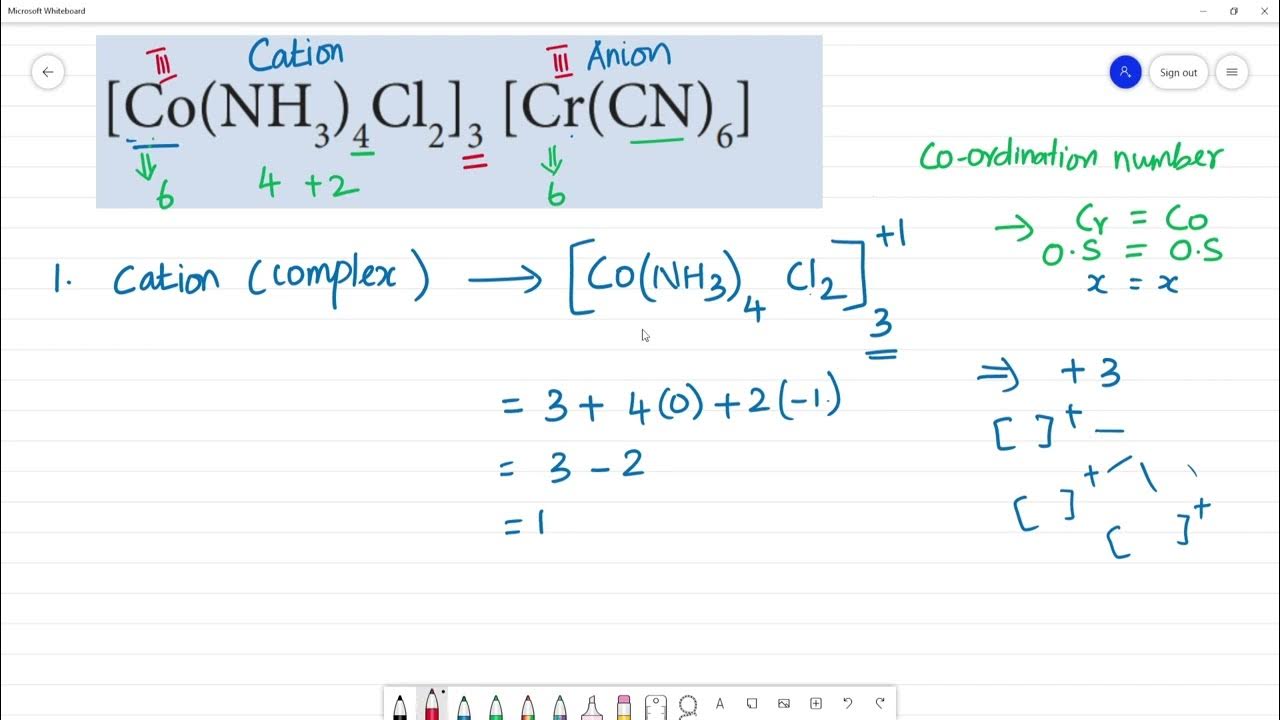 Microsoft Whiteboard
Sign out
III Cation III Anion
[Co(NH₃)₄Cl₂]₃ [Cr(CN)₆]
6 4 + 2 6
Co-ordination number
→ Cr = Co
O.S = O.S
x = x
1. Cation (complex) ⟶ [Co(NH3)₄ Cl₂]⁺¹ ₃
= 3 + 4(0) + 2(-1)
= 3 - 2
= 1
⇒ +3
[ ]⁺ —
[ ]⁺
[ ]⁺
A